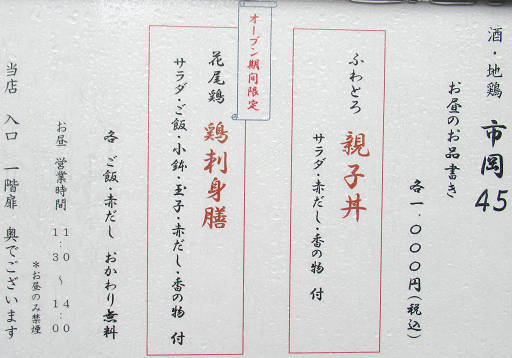 酒・地鶏 市岡45
お昼のお品書き
各一.〇〇〇円(税込)
ふわとろ 親子丼
サラダ・赤だし・香の物 付
オープン期間限定
花尾鶏 鶏刺身膳
サラダ・ご飯・小鉢・玉子・赤だし・香の物 付
各 ご飯・赤だし おかわり無料
お昼 営業時間 11:30 〜 14:00
*お昼のみ禁煙
当店 入口 一階扉 奥でございます